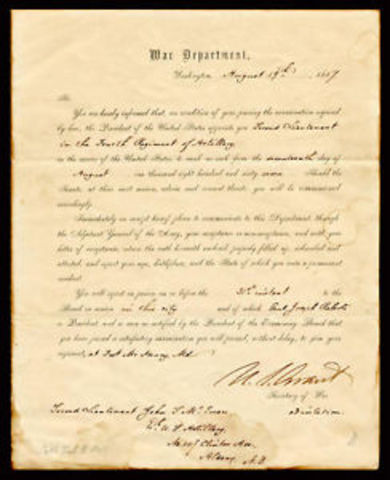 War Department,
Washington, August 19th, 1867
Sir:
You are hereby informed that, on condition of your passing the examination required
by law, the President of the United States appoints you Second Lieutenant
in the Fourth Regiment of Artillery
in the service of the United States to rank as such from the nineteenth day of
August one thousand eight hundred and sixty seven Should the
Senate, at their next session, advise and consent thereto, you will be commissioned
accordingly.
Immediately on receipt hereof, please to communicate to this Department, through
the Adjutant General of the Army, your acceptance or non-acceptance; and with your
letter of acceptance, return the oath herewith enclosed, properly filled up, subscribed and
attested, and report your age, birthplace, and the State of which you were a permanent
resident.
You will report in person on or before the 31st instant to the
Board in session in this city and of which Joseph Roberts
is President, and as soon as notified by the President of the Examining Board that
you have passed a satisfactory examination you will proceed, without delay, to join your
regiment, at Fort McHenry, Md.
U. S. Grant
Secretary of War
Second Lieutenant John
4th U. S. Artillery,
Clinton Ave.
Albany, N.Y.